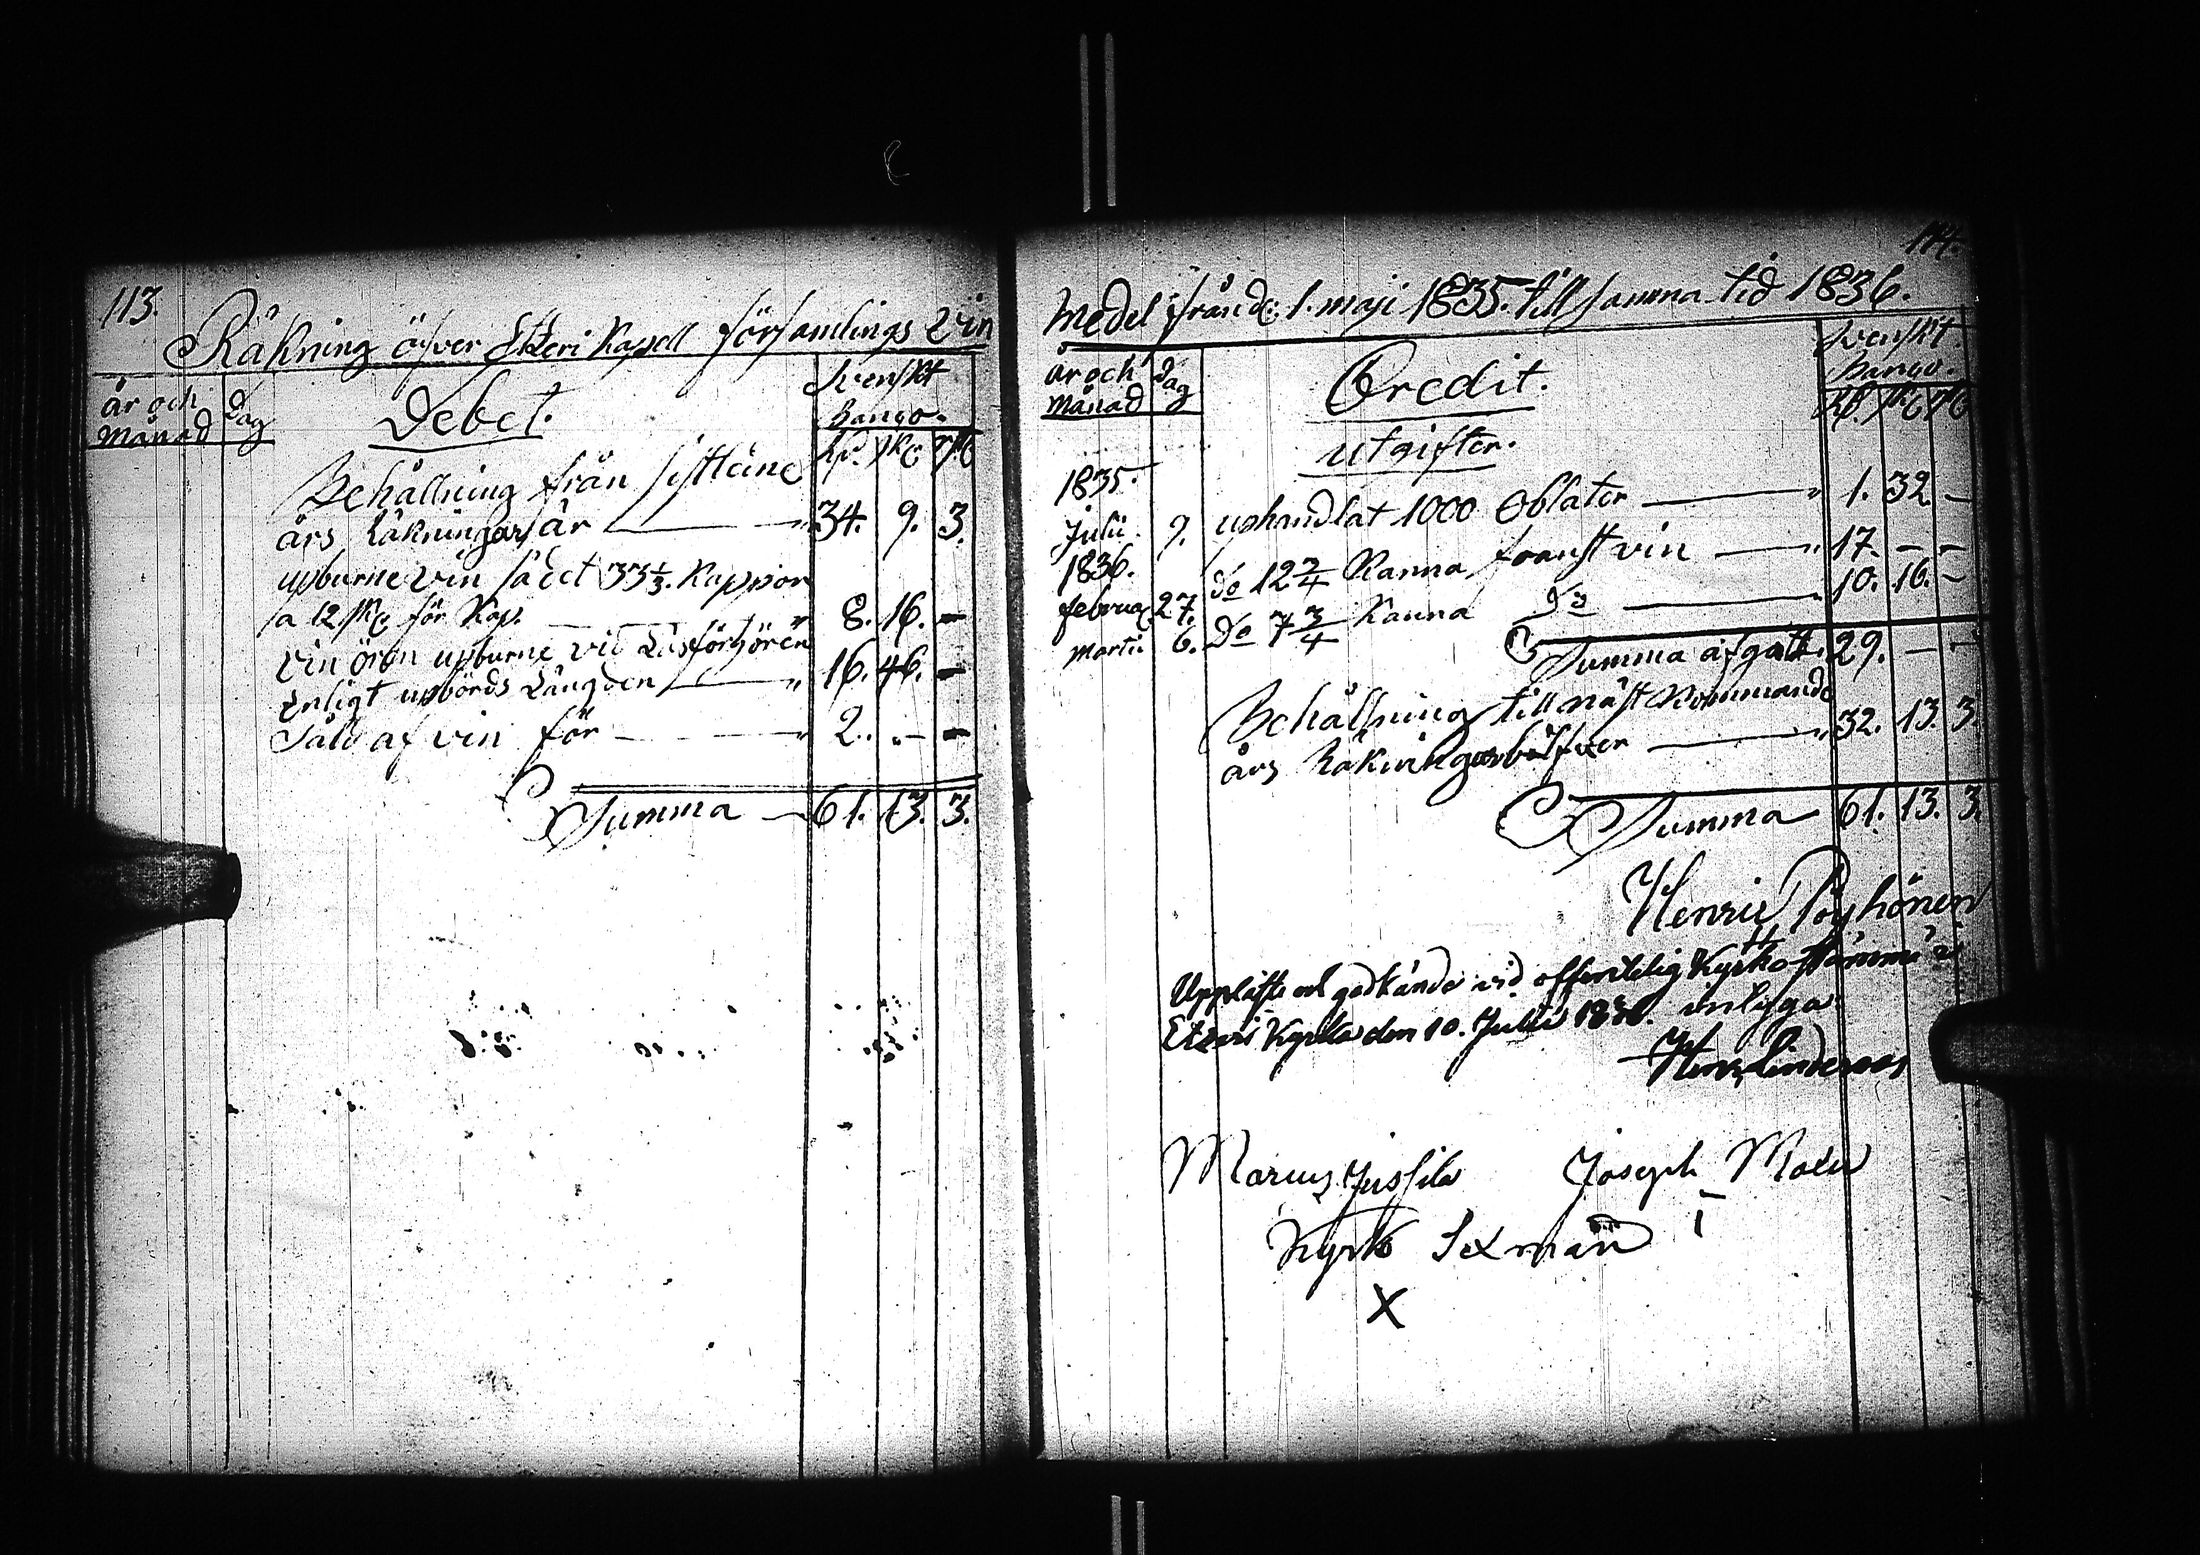 113.
Räkning öfver Etzeri Kapell församlings Vin
År och Månad
Dag
Debet.
Svenskt Banco.
Rd. sk: rst.
Behållning från sistledne
års Räkningar är 34. 9. 3.
upburne vin sädet 33 1/3. Kappor
a 12 sk: för Kap. 8. 16. -
Vin ören upburne vid Läsförhören
Enligt upbörds Längden 16. 46. -
Såld af vin för 2. - -
Summa 61. 13. 3.
114.
Medel ifrån d: 1. maji 1835. till samma tid 1836.
År och Månad
Dag
Credit.
Svenskt Banco.
Rd. sk: rst.
utgifter.
1835.
Julii 9. uphandlat 1000 Oblater 1. 32 -
1836.
februa: 27. do 12 3/4 Kanna franst vin 17. - -
Martii 6. do 7 3/4 Kanna do 10. 16. -
Summa afgått 29. - -
Behållning till näst Kommande
års Räkningar 32. 13. 3.
Summa 61. 13. 3.
Henric Pöyhönen
Uppläste och godkände vid offentelig Kyrko stämma i
Etzeri Kyrka den 10. Julii 1836. intyga
Henr. Lindeman
Marcus Jussila Joseph
Kyrko Sexmän
X